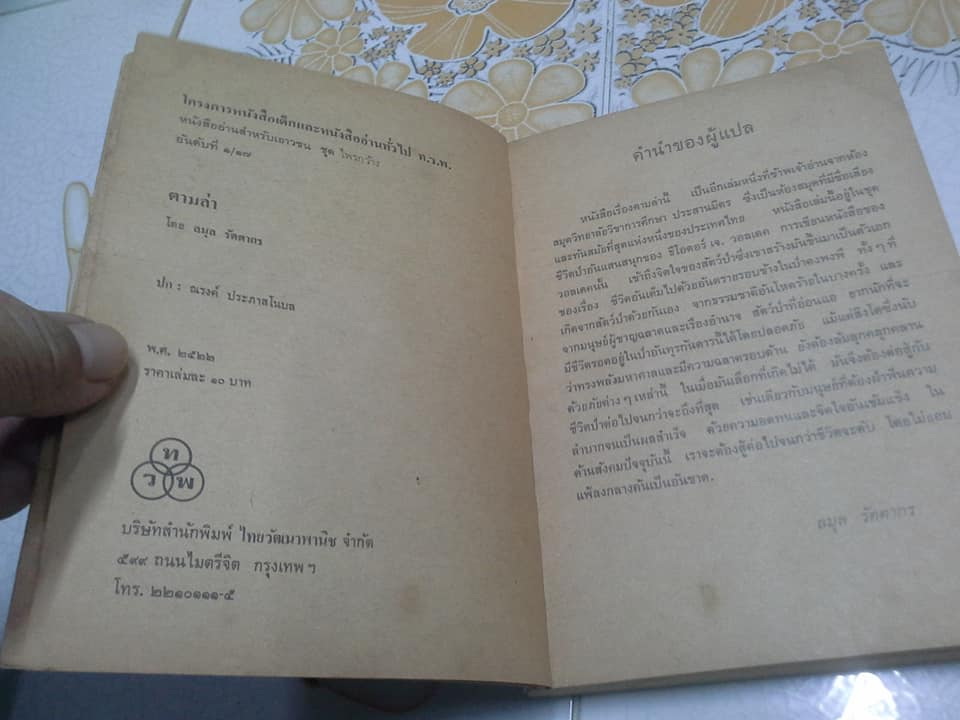 โครงการหนังสือเด็กและหนังสืออ่านทั่วไป ท.ว.พ.
หนังสืออ่านสำหรับเยาวชน ชุด ไพรกว้าง
อันดับที่ ๑/๑๗
ตามล่า
โดย ลมุล รัตตากร
ปก : ณรงค์ ประภาสโนบล
พ.ศ. ๒๕๒๒
ราคาเล่มละ ๑๐ บาท
ท
ว พ
บริษัทสำนักพิมพ์ ไทยวัฒนาพานิช จำกัด
๕๙๙ ถนนไมตรีจิต กรุงเทพ ฯ
โทร. ๒๒๑๐๑๑๑-๕
คำนำของผู้แปล
หนังสือเรื่องตามล่านี้ เป็นอีกเล่มหนึ่งที่ข้าพเจ้าอ่านจากห้อง
สมุดวิทยาลัยวิชาการศึกษา ประสานมิตร ซึ่งเป็นห้องสมุดที่มีชื่อเสียง
และทันสมัยที่สุดแห่งหนึ่งของประเทศไทย หนังสือเล่มนี้อยู่ในชุด
ชีวิตป่าอันแสนสนุกของ ธีโอดอร์ เจ. วอลเดค การเขียนหนังสือของ
วอลเดคนั้น เข้าถึงจิตใจของสัตว์ป่าซึ่งเขาสร้างมันขึ้นมาเป็นตัวเอก
ของเรื่อง ชีวิตอันเต็มไปด้วยอันตรายรอบข้างในป่าดงพงพี ทั้ง ๆ ที่
เกิดจากสัตว์ป่าด้วยกันเอง จากธรรมชาติอันโหดร้ายในบางครั้ง และ
จากมนุษย์ผู้ชาญฉลาดและเรืองอำนาจ สัตว์ป่าที่อ่อนแอ ยากนักที่จะ
มีชีวิตรอดอยู่ในป่าอันทุรกันดารนี้ได้โดยปลอดภัย แม้แต่สิงโตซึ่งนับ
ว่าทรงพลังมหาศาลและมีความฉลาดรอบด้าน ยังต้องล้มลุกคลุกคลาน
ด้วยภัยต่าง ๆ เหล่านี้ ในเมื่อมันเลือกที่เกิดไม่ได้ มันจึงต้องต่อสู้กับ
ชีวิตป่าต่อไปจนกว่าจะถึงที่สุด เช่นเดียวกับมนุษย์ที่ต้องฝ่าฟันความ
ลำบากจนเป็นผลสำเร็จ ด้วยความอดทนและจิตใจอันเข้มแข็ง ใน
ด้านสังคมปัจจุบันนี้ เราจะต้องสู้ต่อไปจนกว่าชีวิตจะดับ โดยไม่ยอม
แพ้ลงกลางคันเป็นอันขาด.
ลมุล รัตตากร